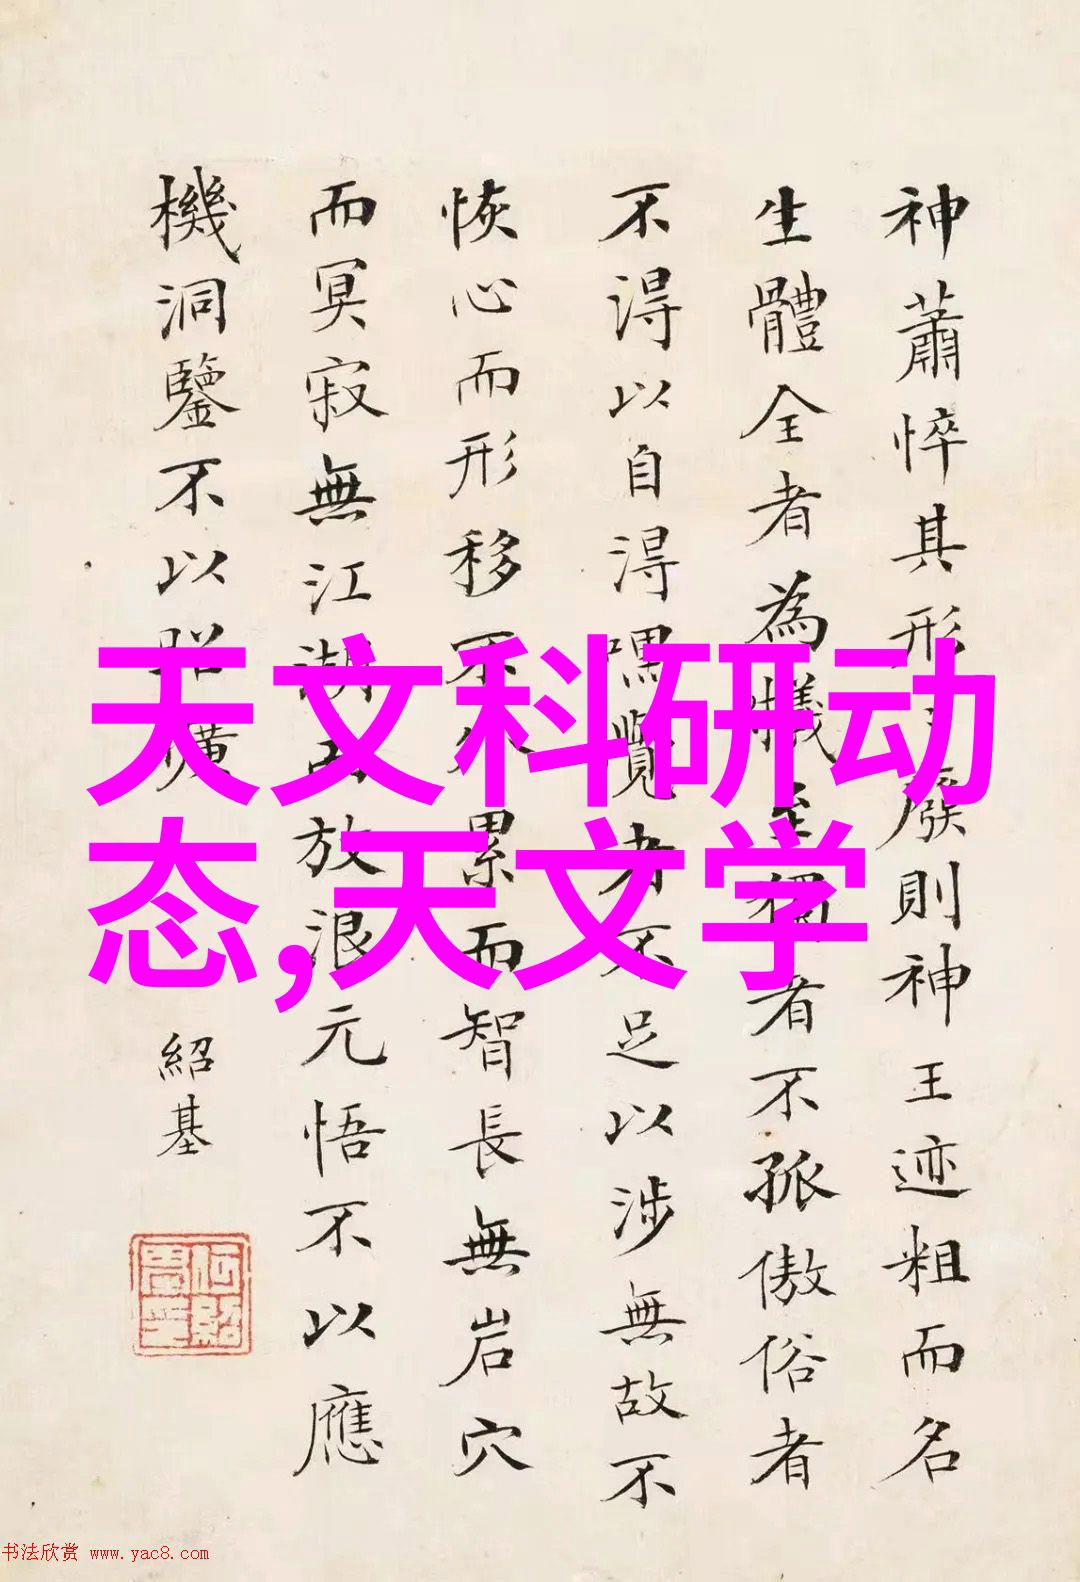 神蕭悴其形廢則神王迹粗而名
生體全者為犧至獨者不孤傲俗者
不得以自得嘿覽者不足以涉無故不
恢心而形移不久累而智長無岩穴
而冥寂無江湖而放浪元悟不以應
機洞鑒不以昭曠
紹基
天文科研动
态,天文学
书法欣赏 www.yac8.com